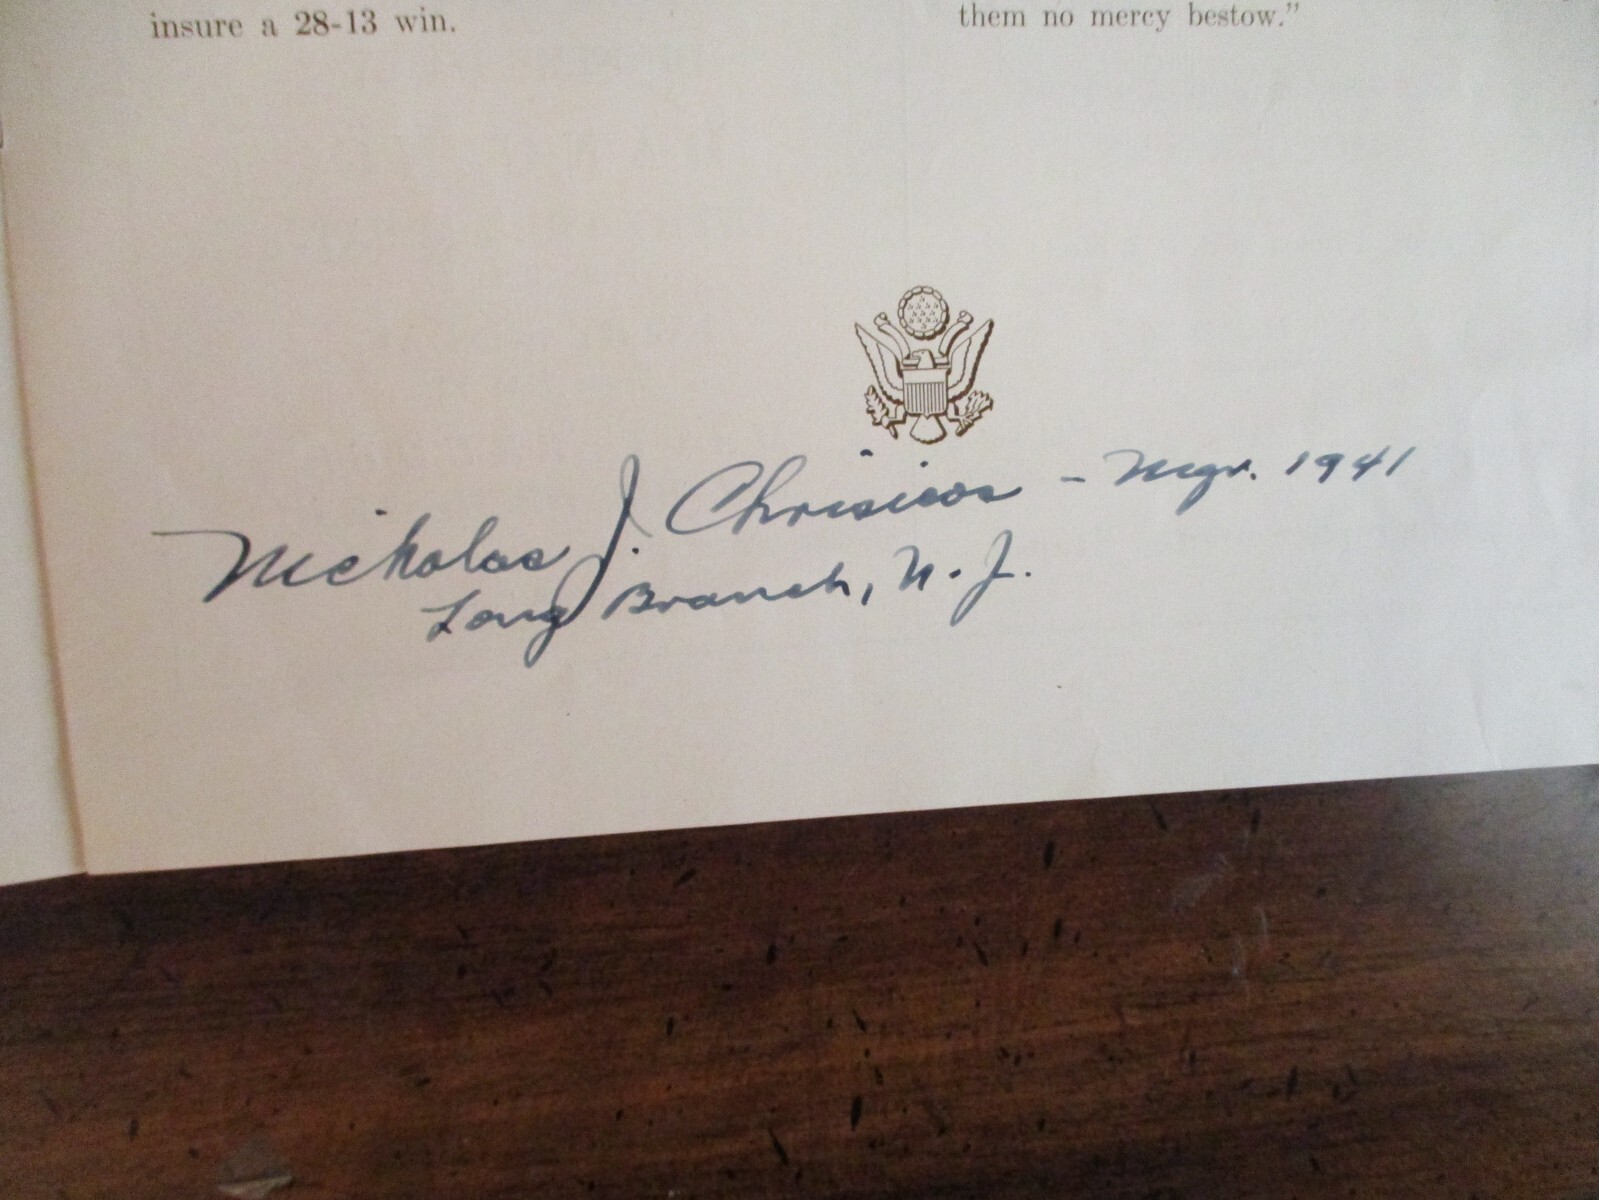 insure a 28-13 win.
them no mercy bestow.”
Nickolas J. Chrisicos – Mgr. 1941
Long Branch, N. J.